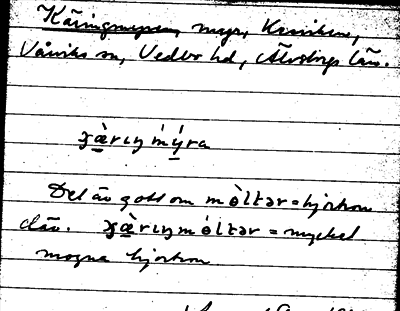 Käringmyren, myr, Kaniken,
Vårviks sn, Vedbo hd, Älvsborgs län.
ɣæ̀rıŋmýra
Det är gott om mòltər = hjortron
där. ɣæ̀rıŋmóltər = mycket
mogna hjortron